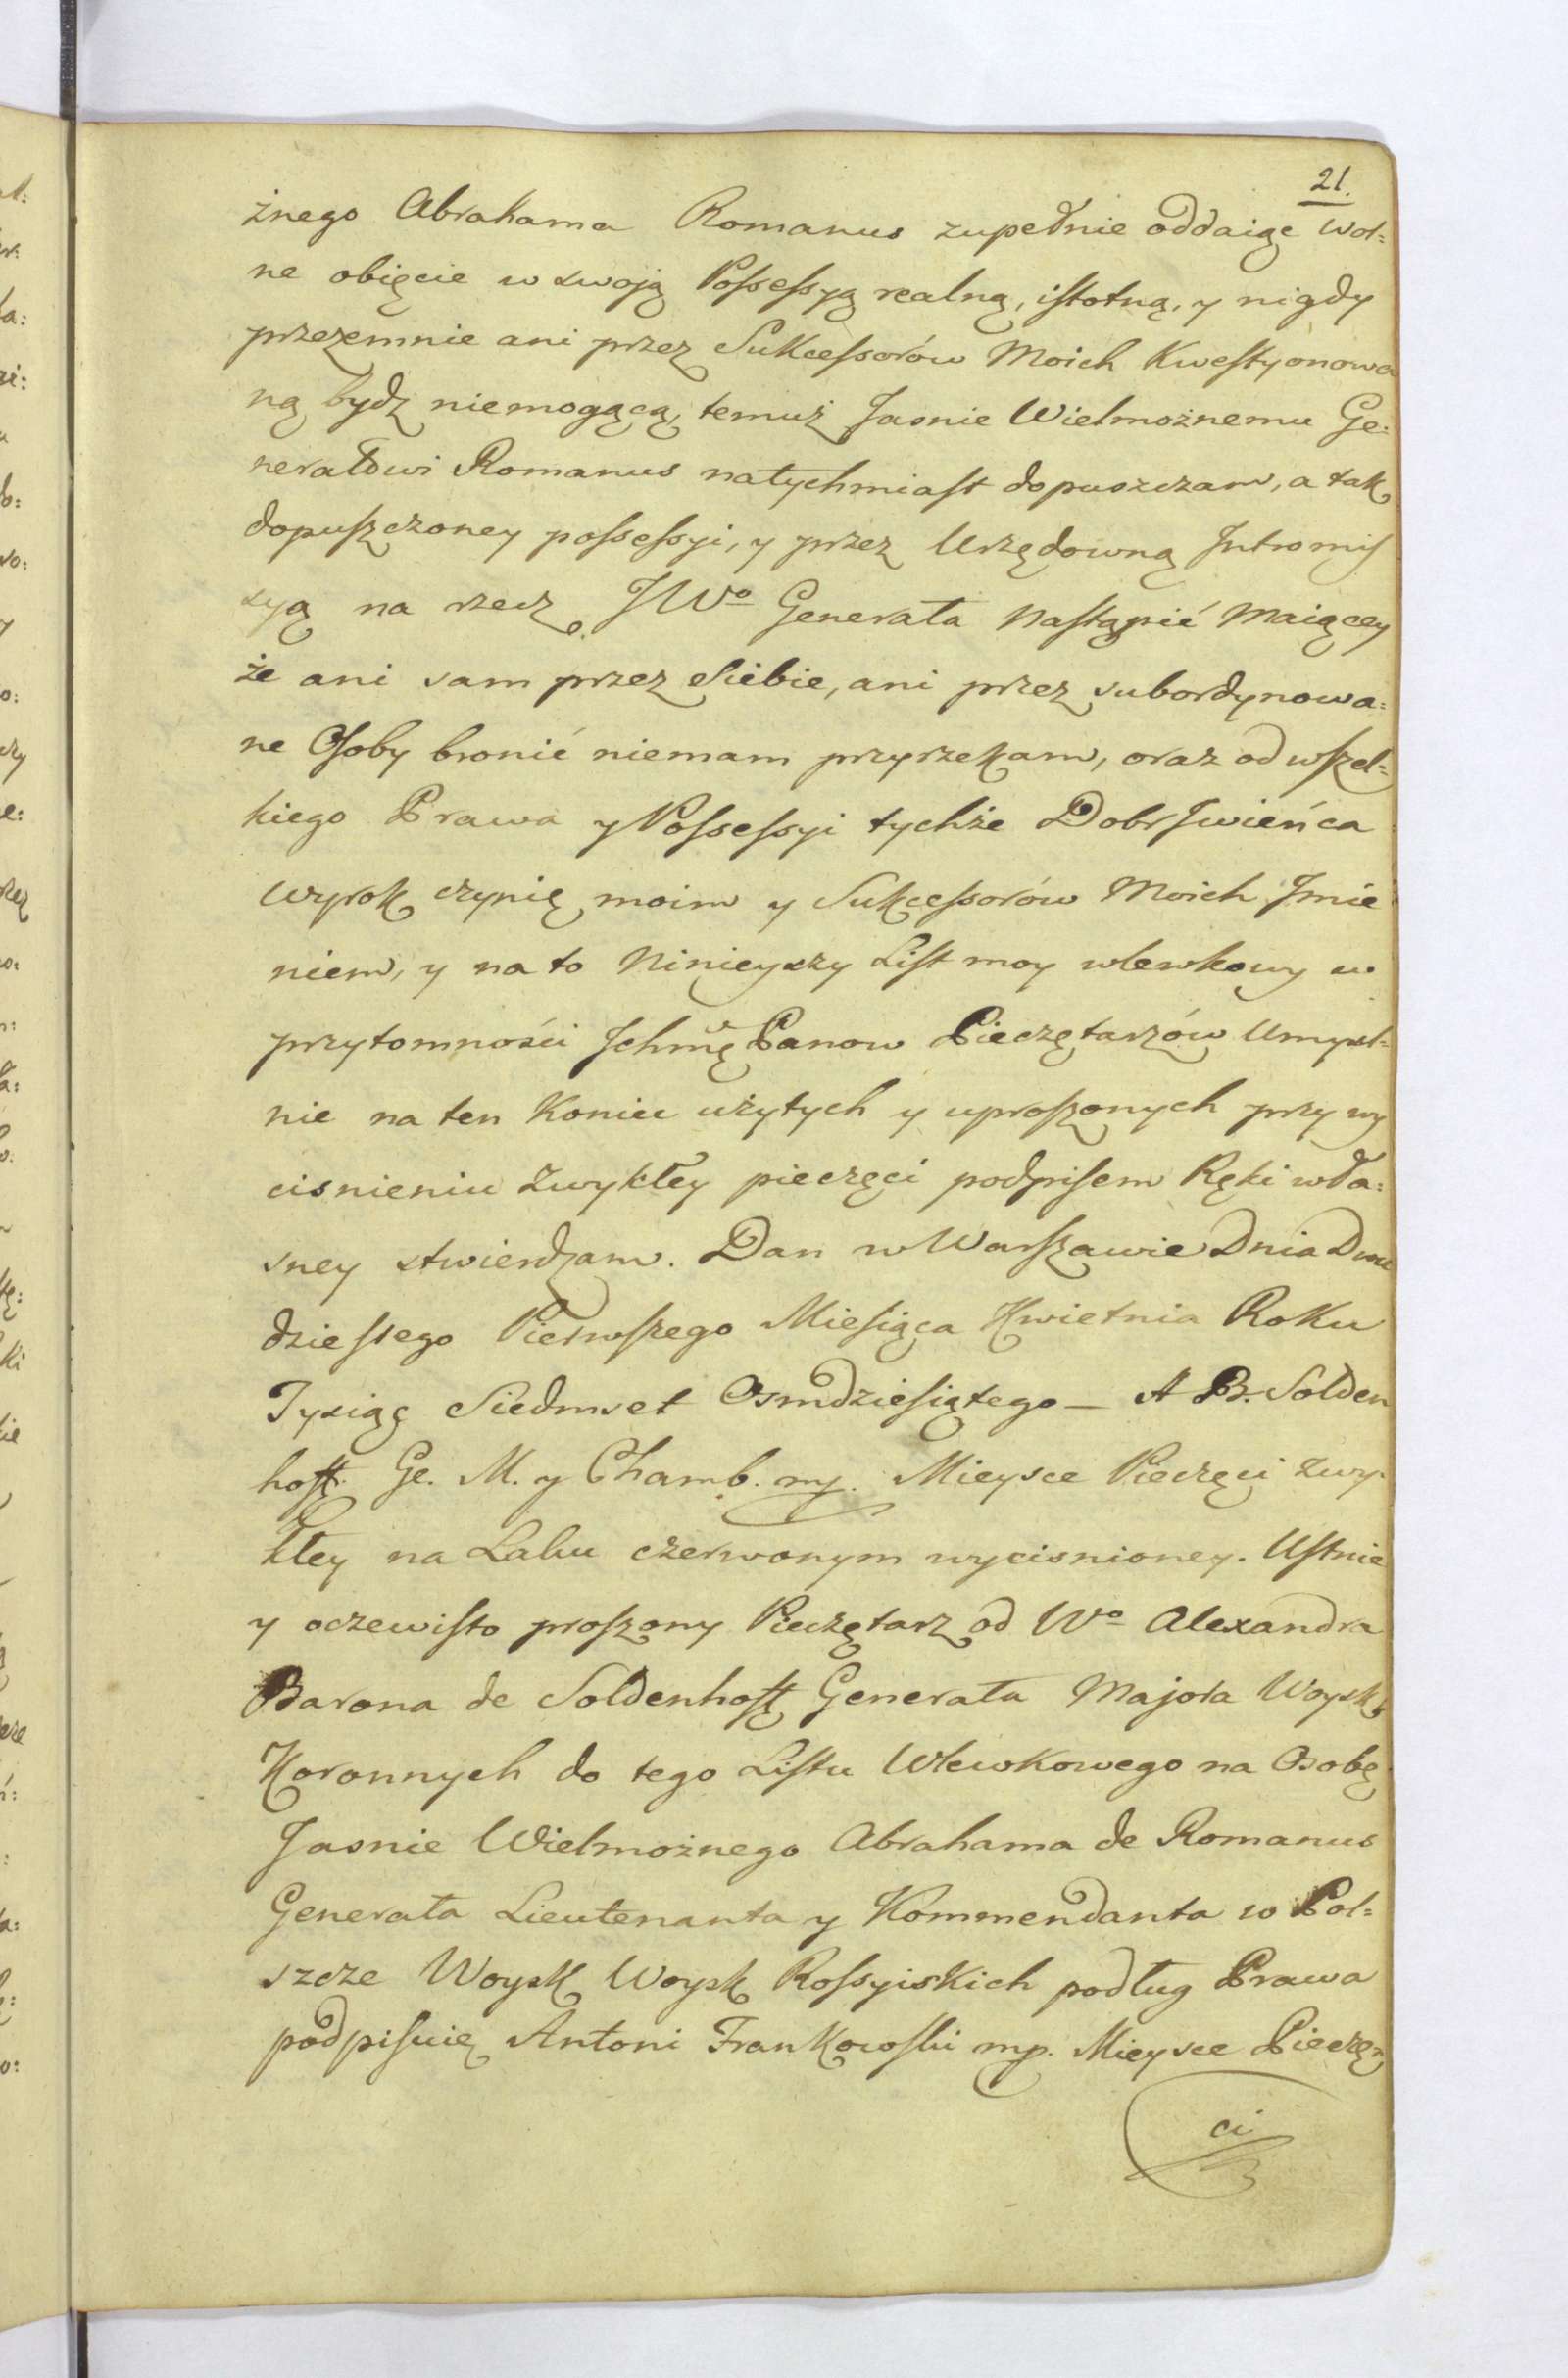 21.
żnego Abrahama Romanus zupełnie oddaiąc wol=
ne obięcie w swoją Possessyą realną, istotną, y nigdy
przezemnie ani przez Sukcessorów Moich Kwestyonowa
ną bydz niemogącą, temuż Jasnie Wielmożnemu Ge=
nerałowi Romanus natychmiast dopuszczam, a tak
dopuszczoney possessyi, y przez Urzędowną Intromis
syą na rzecz JWo Generała Nastąpić Maiącey
że ani sam przez Siebie, ani przez subordynowa=
ne Osoby bronić niemam przyrzekam, oraz od wszel=
kiego Prawa y Possessyi tychże Dobr Iwieńca
Wyrok czynię moim y Sukcessorów Moich Jmie
niem, y na to Ninieyszy List moy wlewkowy w
przytomności Jchmę Panow Pieczętarzów Umysl=
nie na ten Koniec użytych y uproszonych przy wy
cisnieniu Zwykłey pieczęci podpisem Ręki wła=
sney stwierdzam. Dan w Warszawie Dnia Dwu
dziestego Pierwszego Miesiąca Kwietnia Roku
Tysiąc Siedmset Osmdziesiątego — A B. Solden
hoff. Ge. M. y Chamb. mp. Mieysce Pieczęci zwy
kłey na Laku czerwonym wycisnioney. Ustnie
y oczewisto proszony Pieczętarz od Wo Alexandra
Barona de Soldenhoff Generała Majora Woysk
Koronnych do tego Listu Wlewkowego na Osobę
Jasnie Wielmożnego Abrahama de Romanus
Generała Lieutenanta y Kommendanta w Pol=
szcze Woysk Woysk Rossyiskich podług Prawa
podpisuię Antoni Frankowski mp. Mieysce Pieczę=
ci